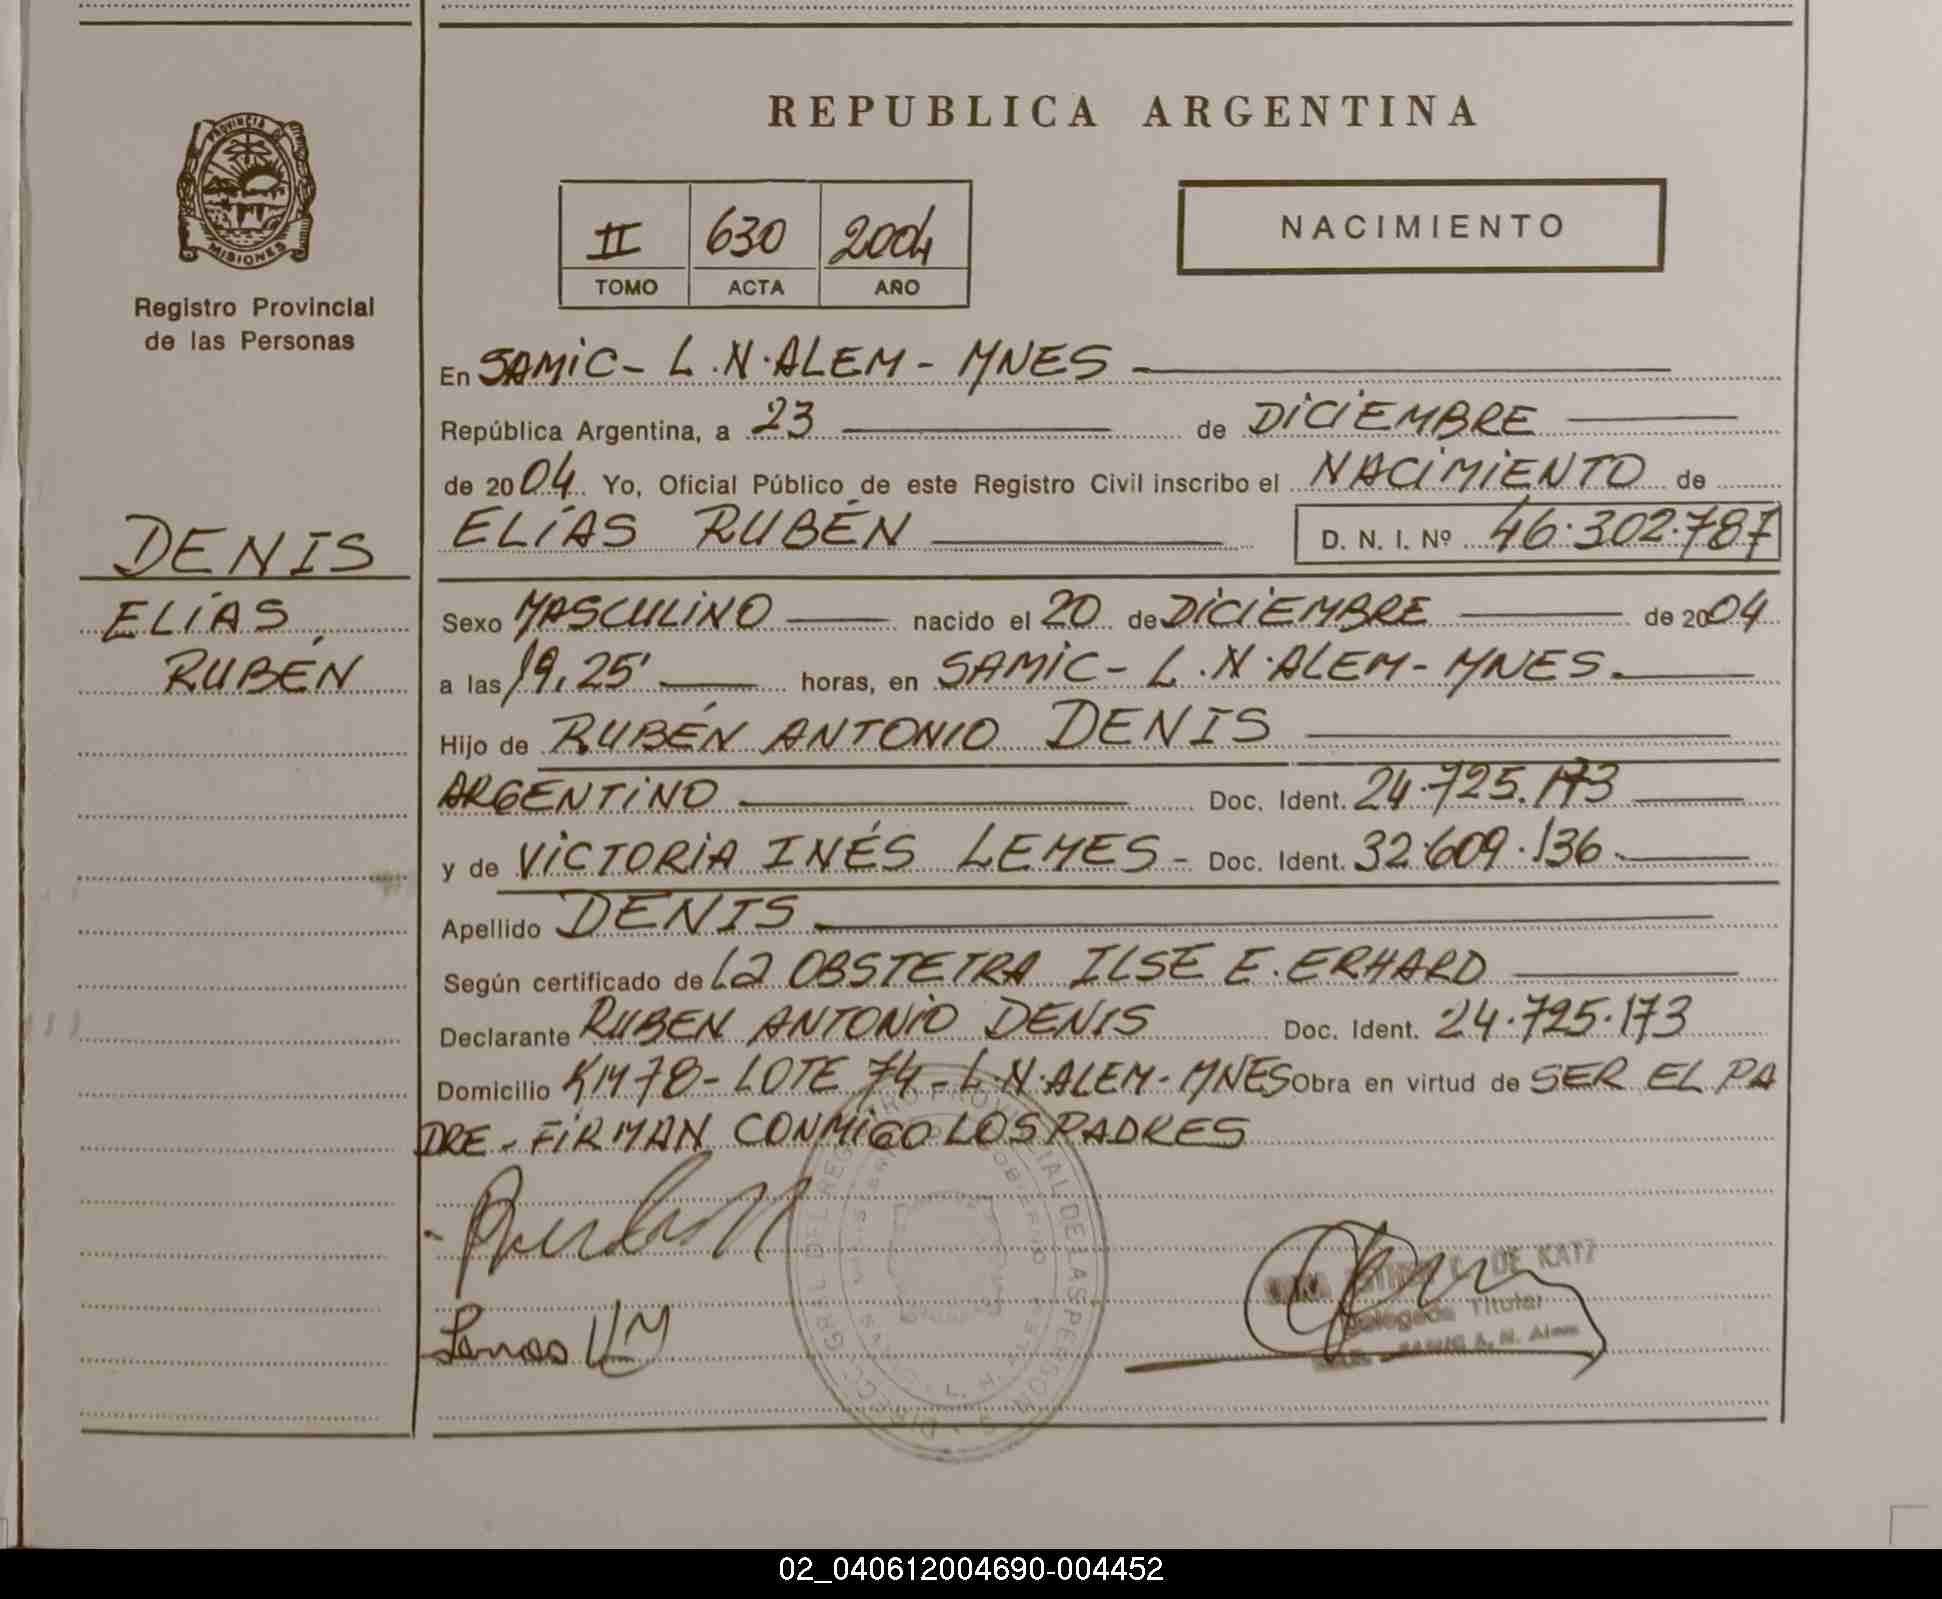 REPUBLICA ARGENTINA
PROVINCIA DE
MISIONES
Registro Provincial
de las Personas
II 630 2004
TOMO ACTA AÑO
NACIMIENTO
En SAMIC - L.N. ALEM - MNES
República Argentina, a 23 de DICIEMBRE
de 2004 Yo, Oficial Público de este Registro Civil inscribo el NACIMIENTO de
ELÍAS RUBÉN D. N. I. Nº 46.302.787
DENIS
ELÍAS
RUBÉN
Sexo MASCULINO nacido el 20 de DICIEMBRE de 2004
a las 19,25' horas, en SAMIC - L.N. ALEM - MNES.
Hijo de RUBÉN ANTONIO DENIS
ARGENTINO Doc. Ident. 24.725.173
y de VICTORIA INÉS LEMES - Doc. Ident. 32.609.136.
Apellido DENIS
Según certificado de La OBSTETRA ILSE E. ERHARD
Declarante RUBEN ANTONIO DENIS Doc. Ident. 24.725.173
Domicilio KM 78 - LOTE 74 - L.N. ALEM - MNES Obra en virtud de SER EL PA
DRE - FIRMAN CONMIGO LOS PADRES
DE KATZ
Delegada Titular
L. N. Alem
02_040612004690-004452